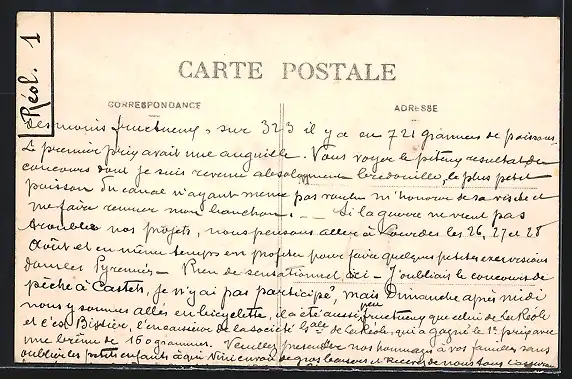 Réol. 1
CARTE POSTALE
CORRESPONDANCE
ADRESSE
des moins fructueux, sur 323 il y a eu 721 grammes de poissons.
Le premier prix avait une anguille. Vous voyez le piteux resultat du
concours dont je suis revenu absolument bredouille, le plus petit
poisson du canal n'ayant meme pas voulu m'honorer de sa visite et
me faire remuer mon bouchon. — Si la guerre ne vient pas
troubler nos projets, nous pensons aller à Lourdes les 26, 27 et 28
Août et en même temps en profiter pour faire quelques petites excursions
dans les Pyrénées — Rien de sensationnel ici — J'oubliais le concours de
pêche à Castets, je n'y ai pas participé, mais Dimanche après midi
nous y sommes allés en bicyclette, il a été aussi peu fructueux que celui de La Réole
et c'est l'encaisseur de la société Gale de La Réole, qui a gagné le 1er prix avec
une brème de 160 grammes. Veuillez présenter nos hommages à vos familles sans
oublier les petits enfants à qui de gros baisers et recevez de nous tous